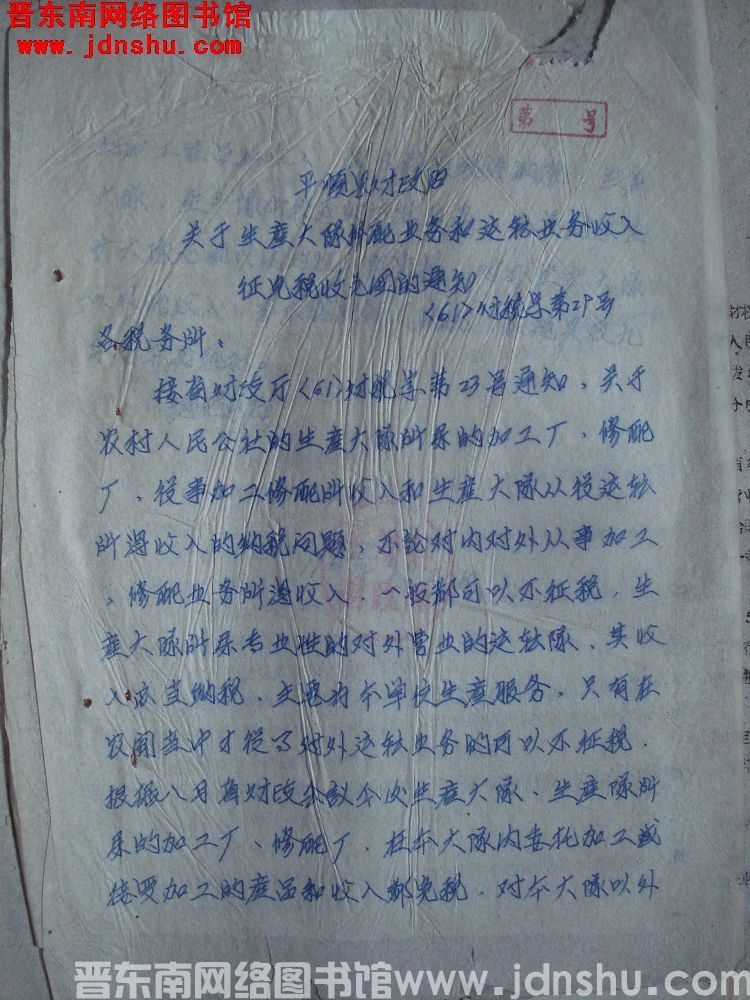 晋东南网络图书馆
www.jdnshu.com
第 号
平顺县财政局
关于生产大隊修配业务和运输业务收入
征免税收范围的通知
〈61〉财税字第29号
各税务所：
接省财政厅〈61〉财税字第23号通知、关于
农村人民公社的生产大隊所属的加工厂、修配
厂、從事加工修配所收入和生产大隊从從运输
所得收入的纳税问题，不論对内对外从事加工
、修配业务所得收入、一般都可以不征税，生
产大隊所属专业性的对外营业的运输隊、其收
入应当纳税、主要为本单位生产服务，只有在
农闲当中才從了对外运输业务的可以不征税．
根据八月省财政会议今次生产大隊、生产隊所
属的加工厂、修配厂．在本大隊内委托加工或
接受加工的产品和收入都免税．对本大隊以外
晋东南网络图书馆www.jdnshu.com